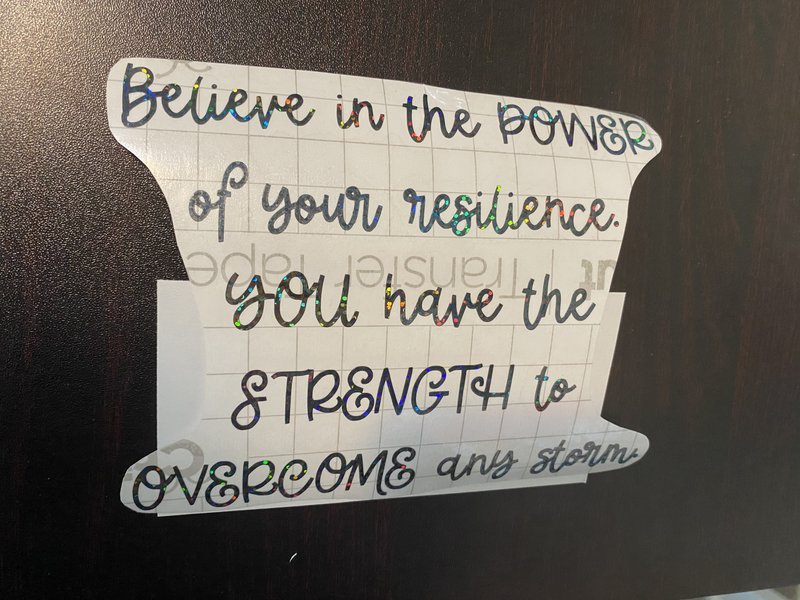 Believe in the POWER
of your resilience.
Transfer Tape
YOU have the
STRENGTH to
OVERCOME any storm.